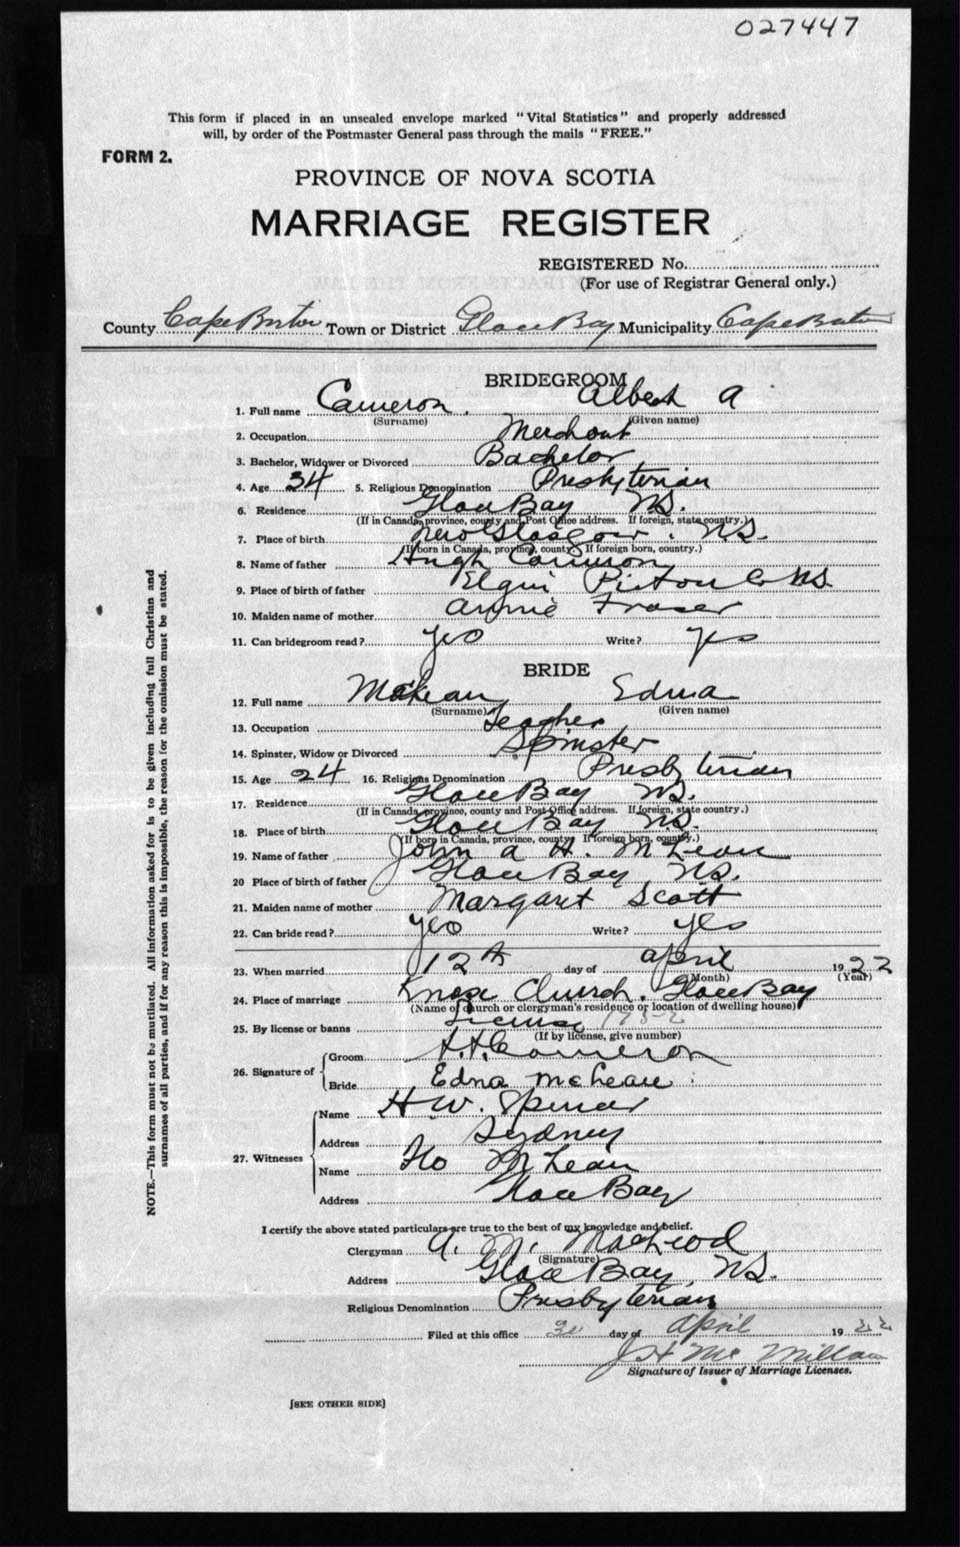 027447
This form if placed in an unsealed envelope marked "Vital Statistics" and properly addressed
will, by order of the Postmaster General pass through the mails "FREE."
FORM 2.
PROVINCE OF NOVA SCOTIA
MARRIAGE REGISTER
REGISTERED No.
(For use of Registrar General only.)
County Cape Breton Town or District Glace Bay Municipality Cape Breton
BRIDEGROOM
1. Full name Cameron. Albert A
(Surname) (Given name)
2. Occupation Merchant
3. Bachelor, Widower or Divorced Bachelor
4. Age 34 5. Religious Denomination Presbyterian
6. Residence Glace Bay NS.
(If in Canada, province, county and Post Office address. If foreign, state country.)
7. Place of birth New Glasgow. NS.
(If born in Canada, province, county. If foreign born, country.)
8. Name of father Hugh Cameron
9. Place of birth of father Elgin Pictou Co NS
10. Maiden name of mother Annie Fraser
11. Can bridegroom read? yes Write? yes
BRIDE
12. Full name McLean Edna
(Surname) (Given name)
13. Occupation Teacher
14. Spinster, Widow or Divorced Spinster
15. Age 24 16. Religious Denomination Presbyterian
17. Residence Glace Bay NS.
(If in Canada, province, county and Post Office address. If foreign, state country.)
18. Place of birth Glace Bay NS.
(If born in Canada, province, county. If foreign born, country.)
19. Name of father John A H. McLean
20 Place of birth of father Glace Bay NS.
21. Maiden name of mother Margaret Scott
22. Can bride read? yes Write? yes
23. When married 12th day of April 1922
(Month) (Year)
24. Place of marriage Knox Church. Glace Bay
(Name of church or clergyman's residence or location of dwelling house)
25. By license or banns License
(If by license, give number)
26. Signature of
Groom Cameron
Bride Edna McLean.
27. Witnesses
Name H W. Spencer
Address Sydney
Name Flo McLean
Address Glace Bay
I certify the above stated particulars are true to the best of my knowledge and belief.
Clergyman A. M. MacLeod
(Signature)
Address Glace Bay, NS.
Religious Denomination Presbyterian
Filed at this office day of April 1922
J H McMillan
Signature of Issuer of Marriage Licenses.
[SEE OTHER SIDE]
NOTE.—This form must not be mutilated. All information asked for is to be given including full Christian and
surnames of all parties, and if for any reason this is impossible, the reason for the omission must be stated.